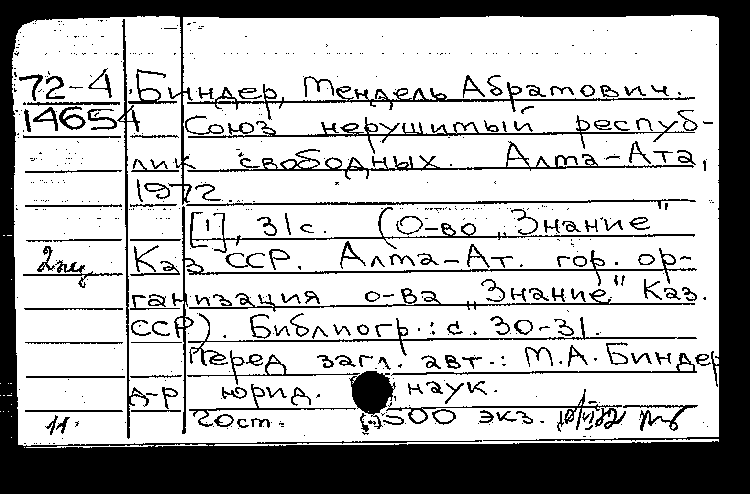 72-4 Биндер, Мендель Абрамович.
14654 Союз нерушимый респуб-
лик свободных. Алма-Ата,
1972.
[1], 31 с. (О-во „Знание"
2 экз Каз ССР. Алма-Ат. гор. ор-
ганизация о-ва „Знание" Каз.
ССР). Библиогр.: с. 30-31.
Перед загл. авт.: М.А. Биндер
д-р юрид. наук.
11. 20 ст. 500 экз.